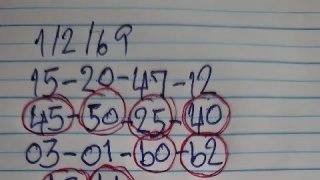 1/2/69
15-20-47-12
45-50-25-40
03-01-60-62